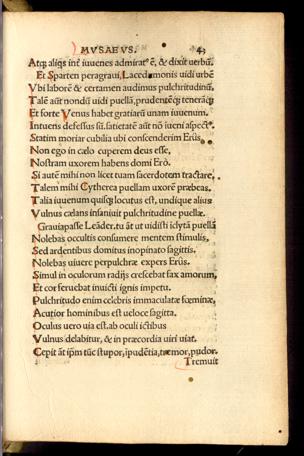 MVSAEVS. 43
Atq; aliq̃s int̃ iuuenes admirat᾽ ẽ, & dixit uerbũ.
Et Sparten peragraui, Lacedæmonis uidi urbẽ
Vbi laborẽ & certamen audimus pulchritudinũ,
Talẽ aũt nondũ uidi puellã, prudentẽq; tenerãq;
Et forte Venus habet gratiarũ unam iuuenum.
Intuens defessus sũ. satietatẽ aũt nõ iueni aspectꝰ.
Statim moriar cubilia ubi conscenderim Erûs
Non ego in cælo cuperem deus esse,
Nostram uxorem habens domi Erò.
Si autẽ mihi non licet tuam sacerdotem tractare,
Talem mihi Cytherea puellam uxorẽ præbeas.
Talia iuuenum quisq; locutus est, undique alius
Vulnus cælans insaniuit pulchritudine puellæ.
Grauiapasse Leãder, tu ãt ut uidisti iclytã puellã
Nolebas occultis consumere mentem stimulis,
Sed ardentibus domitus inopinato sagittis.
Nolebas uiuere perpulchræ expers Erûs.
Simul in oculorum radijs crescebat fax amorum,
Et cor feruebat inuicti ignis impetu.
Pulchritudo enim celebris immaculatæ fœminæ,
Acutior hominibus est ueloce sagitta.
Oculus uero uia est. ab oculi ictibus
Vulnus delabitur, & in præcordia uiri uiat.
Cepit ãt ip̃m tũc stupor, ipudẽtia, tremor, pudor.
Tremuit